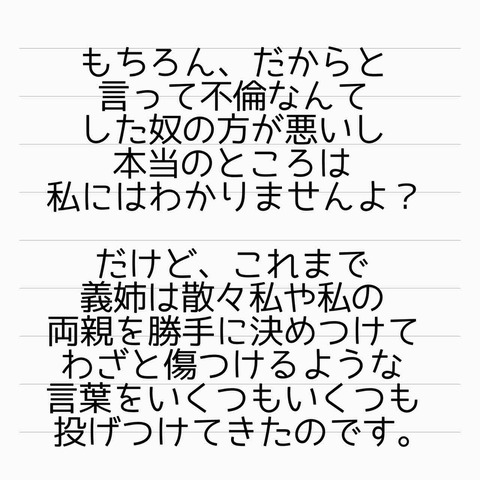 もちろん、だからと
言って不倫なんて
した奴の方が悪いし
本当のところは
私にはわかりませんよ？
だけど、これまで
義姉は散々私や私の
両親を勝手に決めつけて
わざと傷つけるような
言葉をいくつもいくつも
投げつけてきたのです。